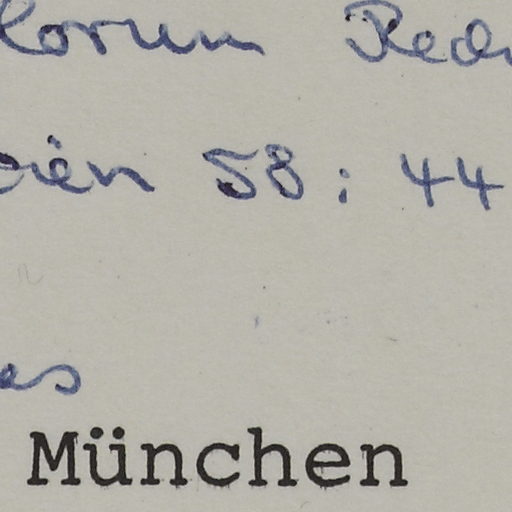 lorum Red
eien 58 : 44
es
München